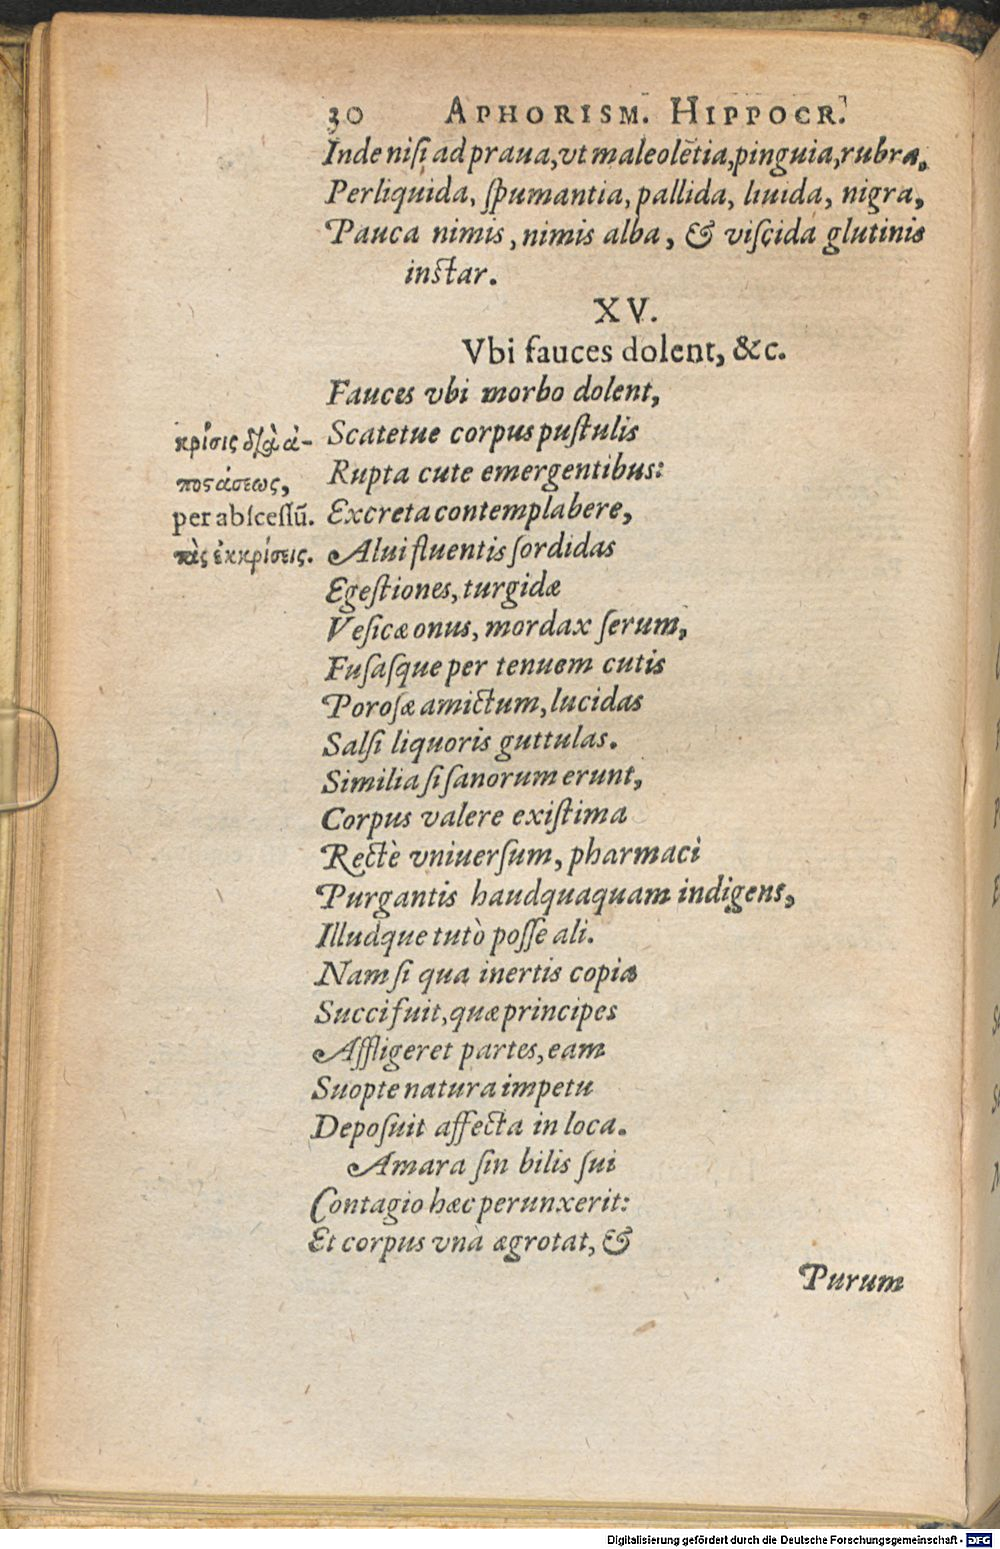 30 APHORISM. HIPPOCR.
Inde nisi ad praua, vt maleolētia, pinguia, rubra,
Perliquida, spumantia, pallida, liuida, nigra,
Pauca nimis, nimis alba, & viscida glutinis
instar.
XV.
Vbi fauces dolent, &c.
Fauces vbi morbo dolent,
Scatetue corpus pustulis
Rupta cute emergentibus:
Excreta contemplabere,
Alui fluentis sordidas
Egestiones, turgidæ
Vesicæ onus, mordax serum,
Fusasque per tenuem cutis
Porosæ amictum, lucidas
Salsi liquoris guttulas.
Similia si sanorum erunt,
Corpus valere existima
Rectè vniuersum, pharmaci
Purgantis haudquaquam indigens,
Illudque tutò posse ali.
Nam si qua inertis copia
Succi fuit, quæ principes
Affligeret partes, eam
Suopte natura impetu
Deposuit affecta in loca.
Amara sin bilis sui
Contagio hæc perunxerit:
Et corpus vnà ægrotat, &
Purum
κρίσις διὰ ἀ-
ποστάσεως,
per abscessū.
τὰς ἐκκρίσεις.
Digitalisierung gefördert durch die Deutsche Forschungsgemeinschaft - DFG